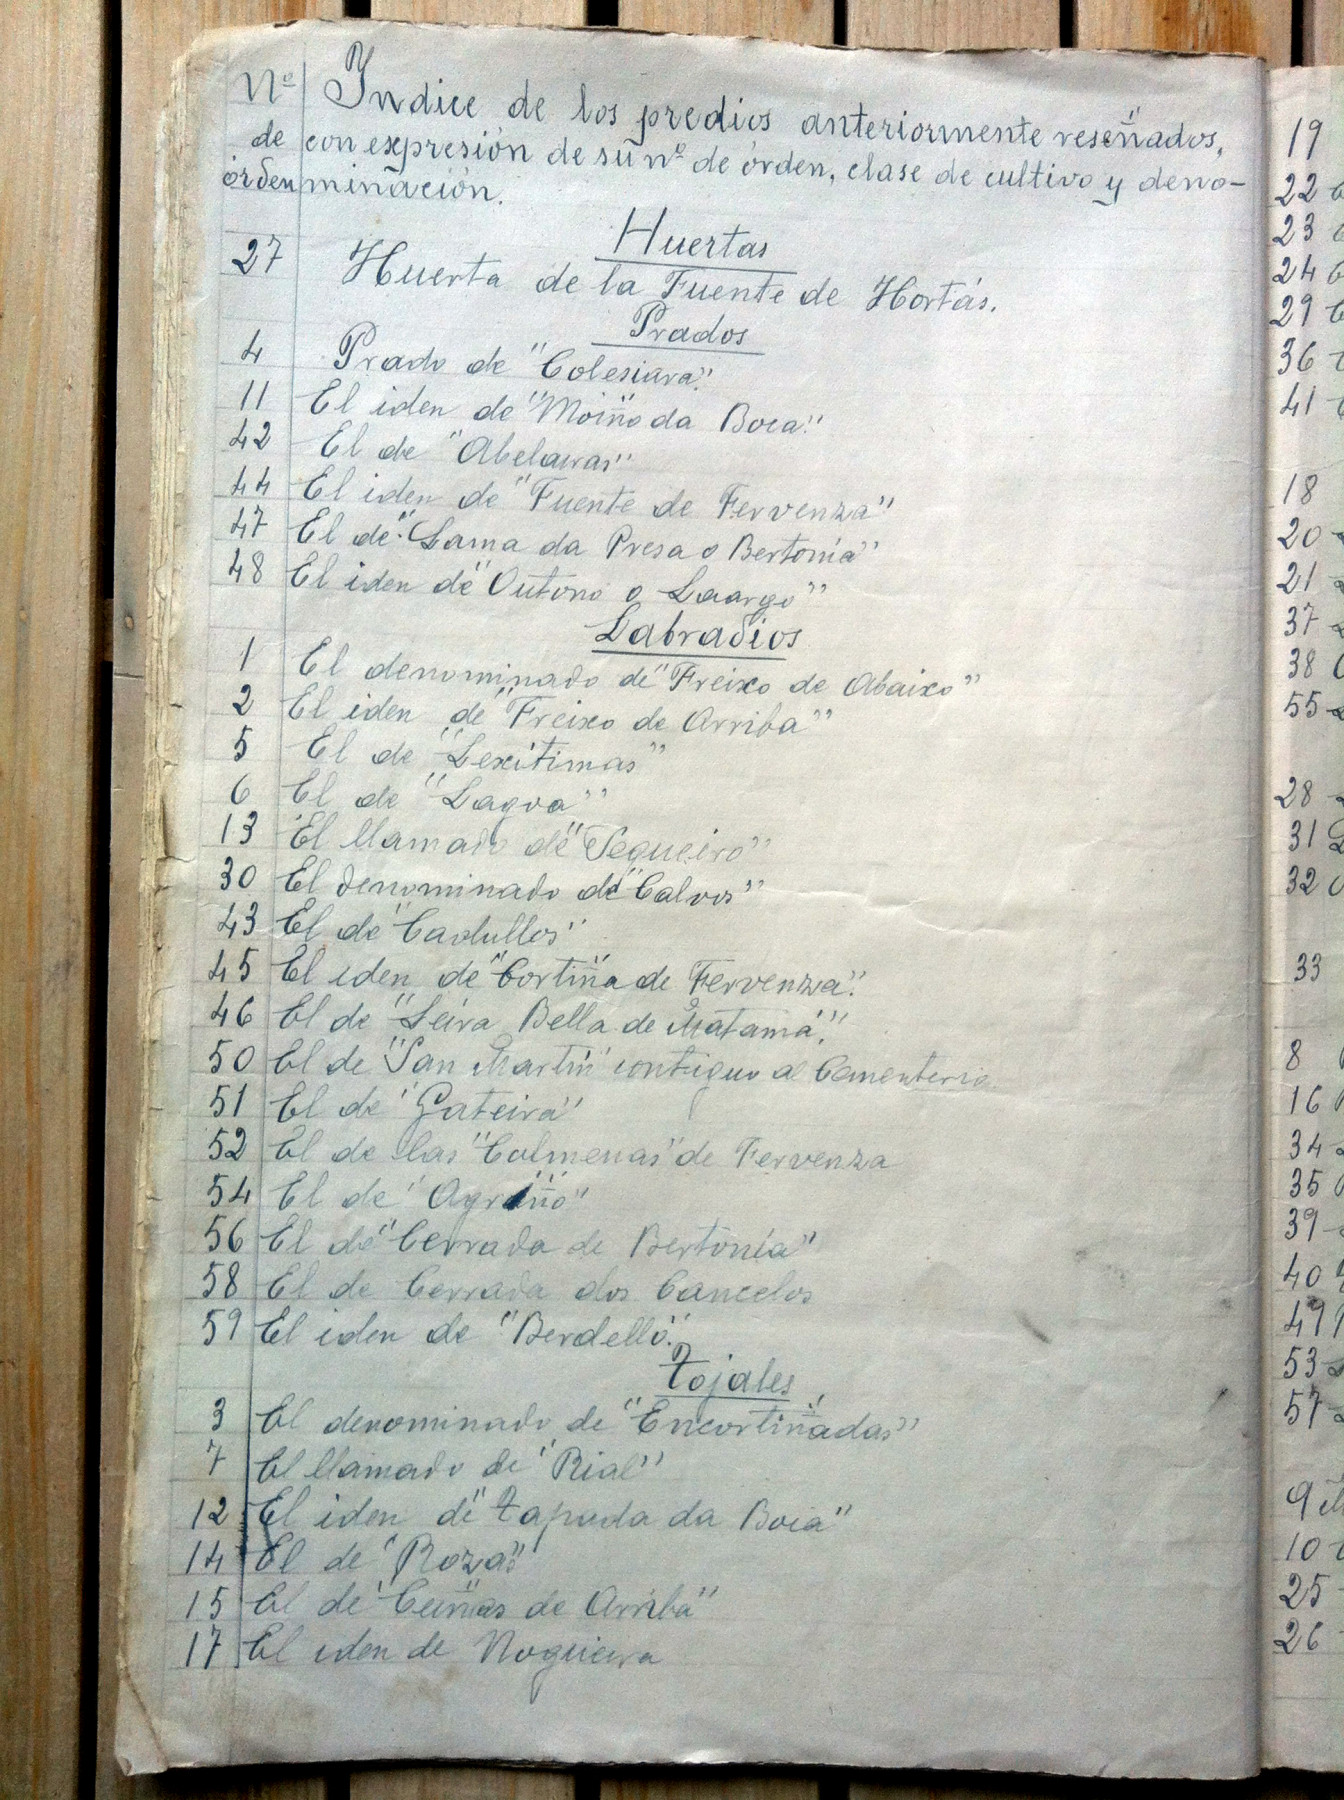 Nº Indice de los predios anteriormente reseñados,
de con expresión de su nº de órden, clase de cultivo y deno-
órden minación.
Huertas
27 Huerta de la Fuente de Hortás.
Prados
4 Prado de "Colesiara"
11 El iden de "Moiño da Boca"
42 El de "Abelairas"
44 El iden de "Fuente de Fervenza"
47 El de "Lama da Presa o Bertonia"
48 El iden de "Outono o Laargo"
Labradios
1 El denominado de "Freixo de Abaixo"
2 El iden de "Freixo de Arriba"
5 El de "Lexitimas"
6 El de "Lagoa"
13 El llamado de "Sequeiro"
30 El denominado de "Calvos"
43 El de "Cadullos"
45 El iden de "Cortiña de Fervenza".
46 El de "Leira Bella de Matamá".
50 El de "San Martín" contiguo al Cementerio
51 El de "Gateira"
52 El de las "Colmenas" de Fervenza
54 El de "Agriño"
56 El de "Cerrada de Bertonía"
58 El de Cerrada dos Cancelos
59 El iden de "Berdello".
Tojales
3 El denominado de "Encortiñadas"
7 El llamado de "Rial"
12 El iden de "Tapada da Boca"
14 El de "Roza"
15 El de "Ceiñas de Arriba"
17 El iden de Nogueira
19
22
23
24
29
36
41
18
20
21
37
38
55
28
31
32
33
8
16
34
35
39
40
49
53
57
9
10
25
26